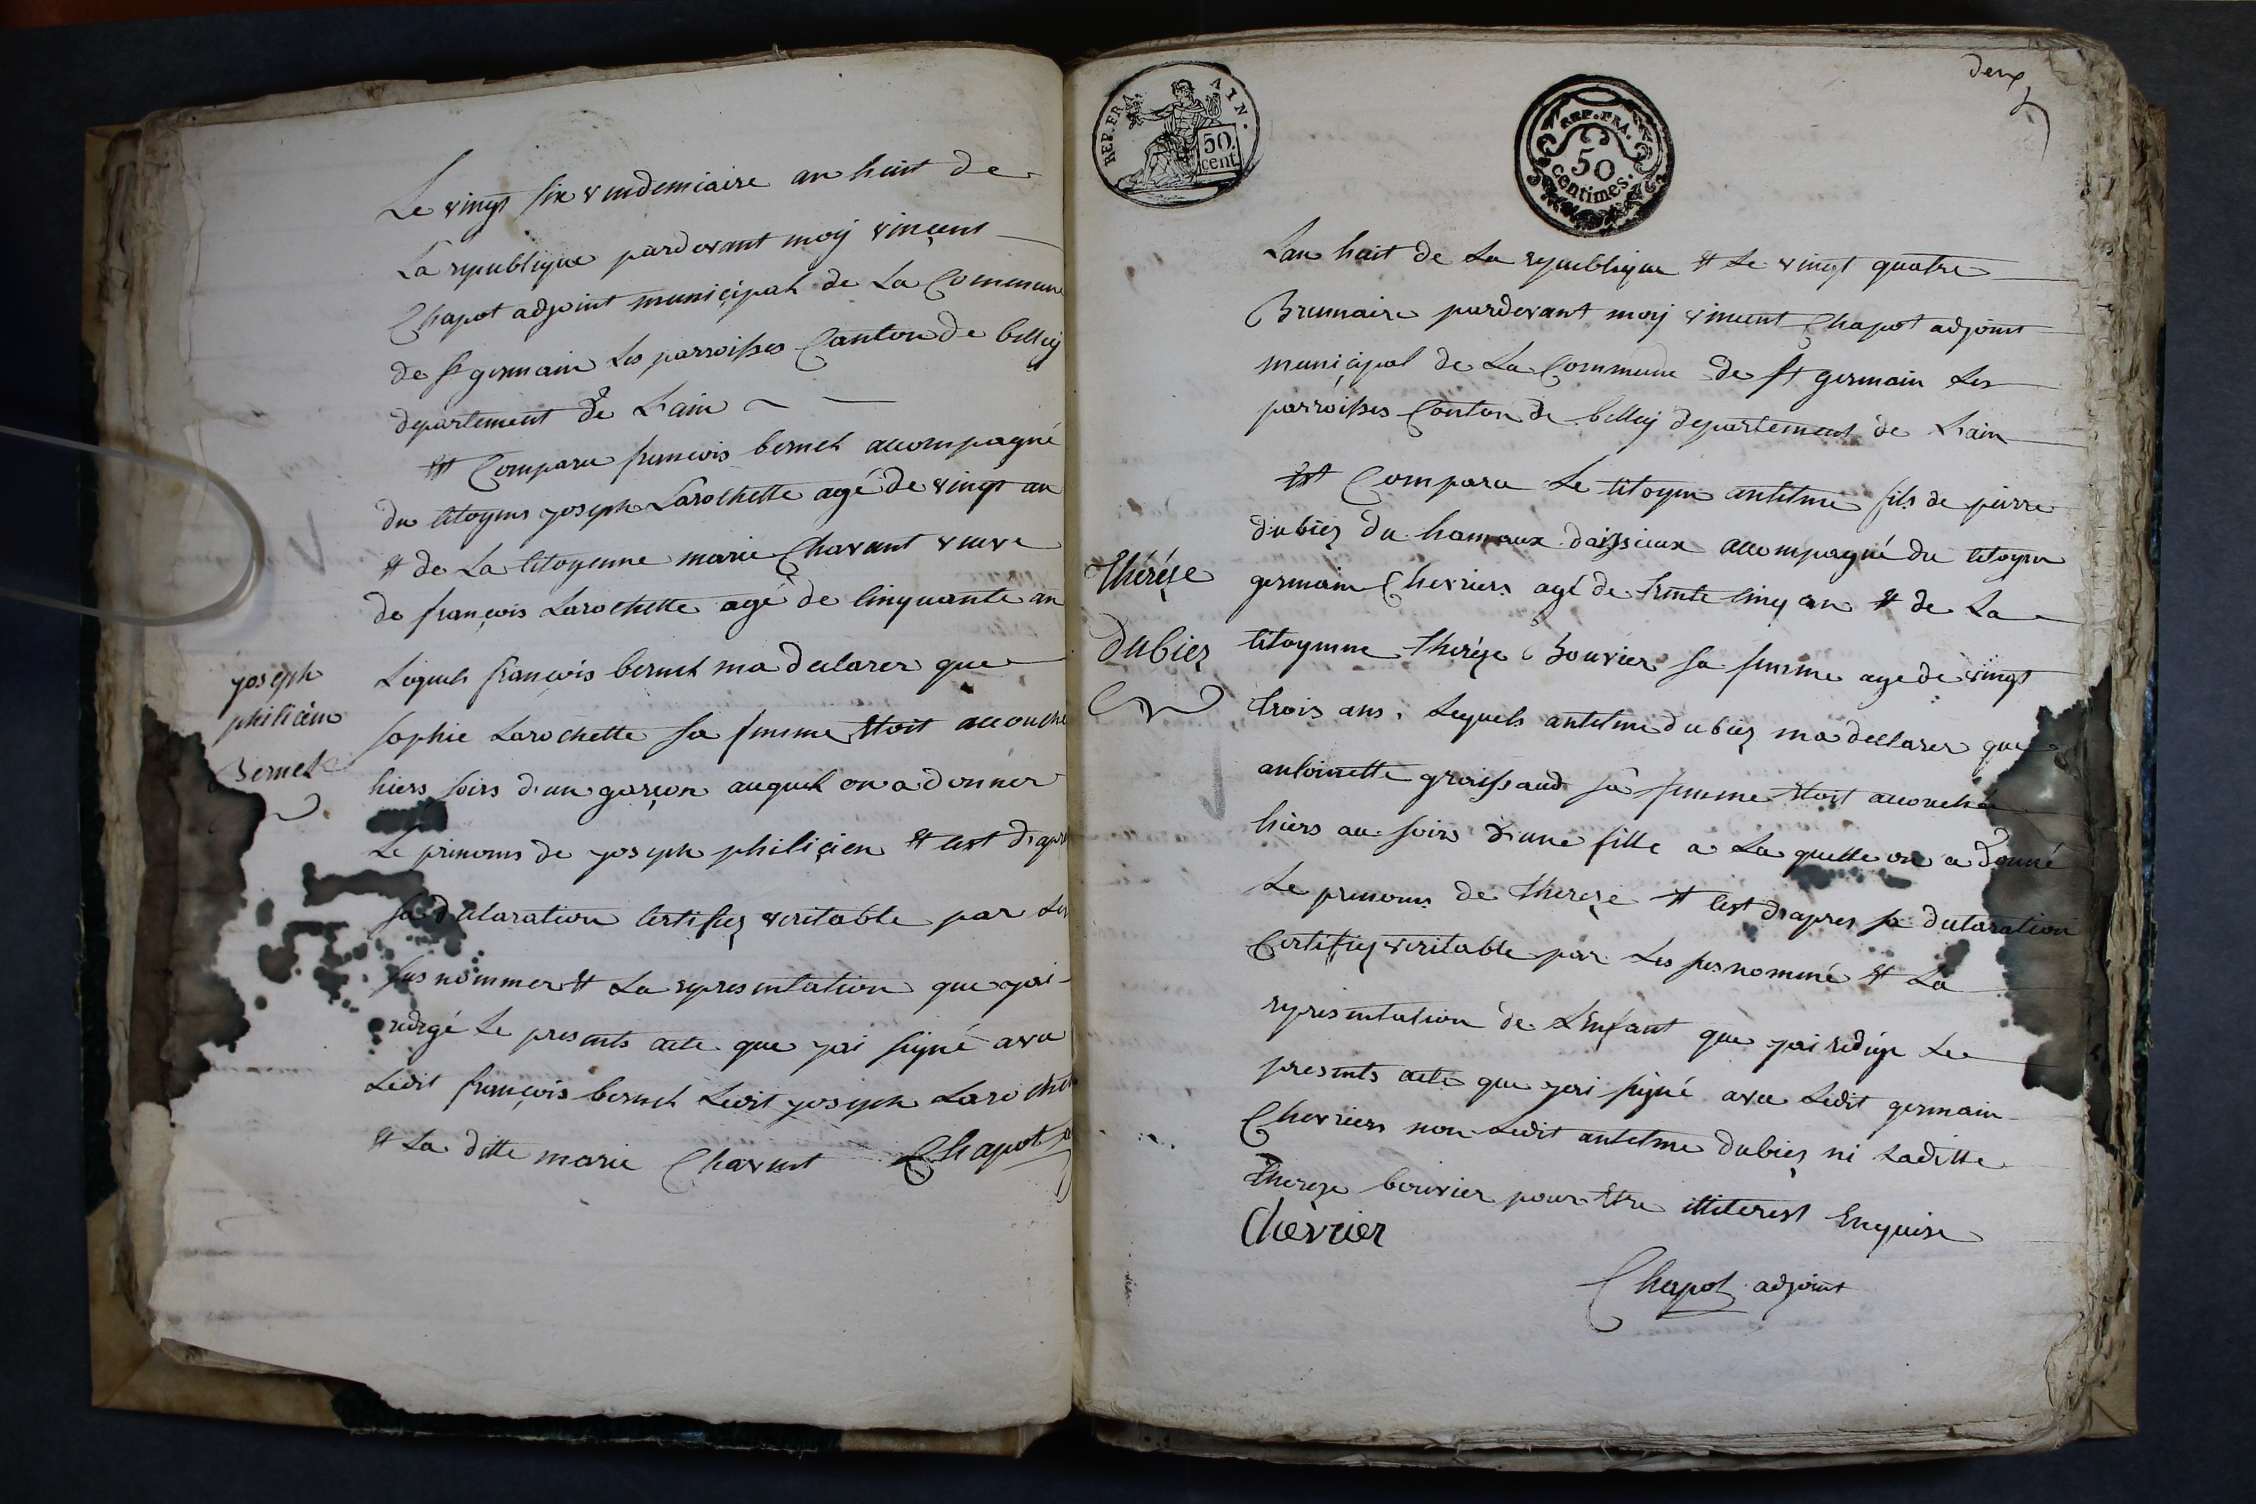 Le vingt six vindemiaire an huit de
La republique pardevant moy vinçent
Chapot adjoint muniçipal de La Commune
de st germain Les parroisses Canton de belley
departement de L'ain
Et Comparu francois bernet accompagné
du citoyens joseph Larochette agé de vingt an
et de La citoyenne marie Chavant veuve
de françois Larochette agé de cinquante an
Lequels françois bernet ma declarer que
joseph
philicien
Bernet
sophie Larochette sa femme Etoit accouché
hiers soirs d'un garçon auquel on a donner
Le prenoms de joseph philiçien et cest d'apre
sa declaration Certifiez veritable par Les
sus nommer et La representation que jai
redigé Le presents acte que jai signé avec
Ledit françois bernet Ledit joseph Larochet
et La ditte marie Chavent Chapot
REP. FRA. AIN.
50 cent
REP. FRA.
50
centimes.
deux
Lan huit de La republique et Le vingt quatre
Brumaire pardevant moy vincent Chapot adjoint
muniçipal de La Commune de st germain Les
parroisses Canton de belley departement de L'ain
Est Comparu Le citoyen antelme fils de pierre
dubiez du hameaux d'aissieux accompagné du citoyen
germain Chevriers agé de trente cinq an et de La
citoyenne thereze Bouvier sa femme agé de vingt
trois ans. Lequels antelme dubiez ma declarer que
Théréze
dubiez
antoinette graissaud sa femme Etoit accouchée
hiers au soirs d'une fille a La quelle on a donné
Le prenoms de thereze et cest d'apres sa declaration
Certifiez veritable par Les susnommé et La
representation de L'enfant que jai redigé Le
presents acte que jai signé avec Ledit germain
Chevriers non Ledit antelme dubiez ni Laditte
thereze bouvier pour Etre illiterest Enquise
Chèvrier
Chapot adjoint